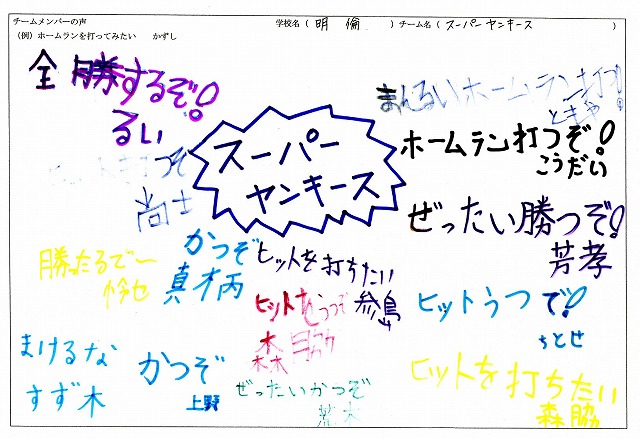 チームメンバーの声
学校名（ 明倫 ）チーム名（ スーパーヤンキース ）
（例）ホームランを打ってみたい　かずし
全勝するぞ!
るい
まんるいホームラン打つ!
ときや
ホームラン打つぞ!
こうだい
スーパー
ヤンキース
ヒットを打つぞ
尚士
ぜったい勝つぞ!
芳孝
勝たるでー
かつぞ
ヒットを打ちたい
ヒットをうつぞ
森脇
ヒットうつで!
ちとせ
まけるな
すず木
かつぞ
上野
ぜったいかつぞ
荒木
ヒットを打ちたい
森脇